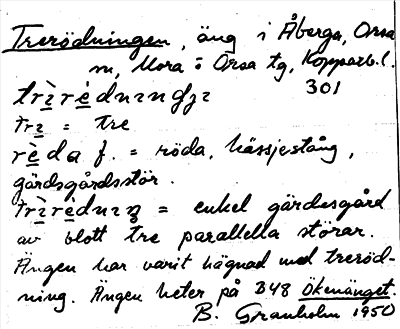 Trerödningen, äng i Åberga, Orsa
sn, Mora o Orsa tg, Kopparb. l.
301
trı̀rèdnıngɟɟı
trı = tre
rèda f. = röda, hässjestång,
gärdsgårdsstör.
trı̀rèdnıŋ = enkel gärdesgård
av blott tre parallella störar.
Ängen har varit hägnad med treröd-
ning. Ängen heter på B48 Ökenänget.
B. Granholm 1950